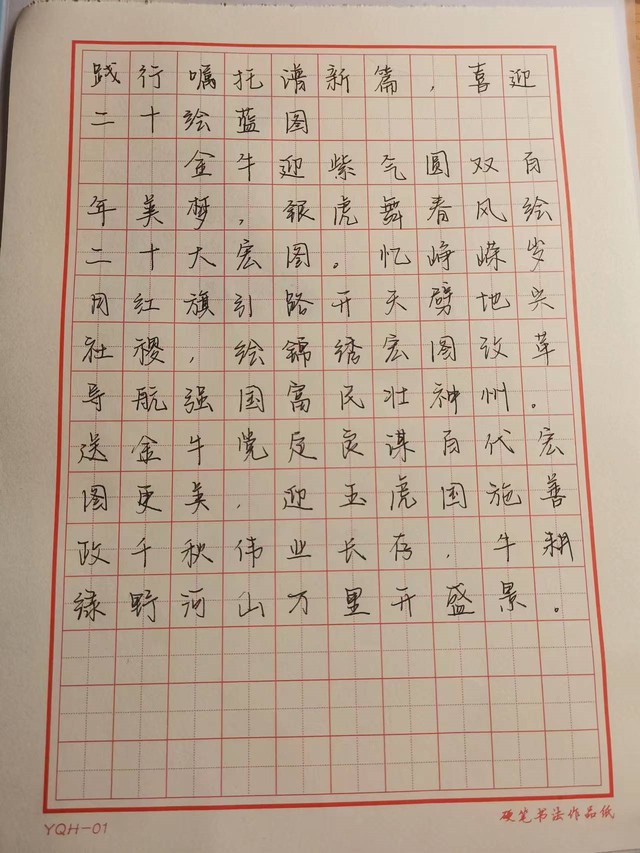 践行嘱托谱新篇，喜迎
二十绘蓝图
金牛迎紫气圆双百
年美梦，银虎舞春风绘
二十大宏图。忆峥嵘岁
月红旗引路开天劈地兴
社稷，绘锦绣宏图改革
导航强国富民壮神州。
送金牛党定良谋百代宏
图更美，迎玉虎国施善
政千秋伟业长存，牛耕
绿野河山万里开盛景。
硬笔书法作品纸
YQH-01